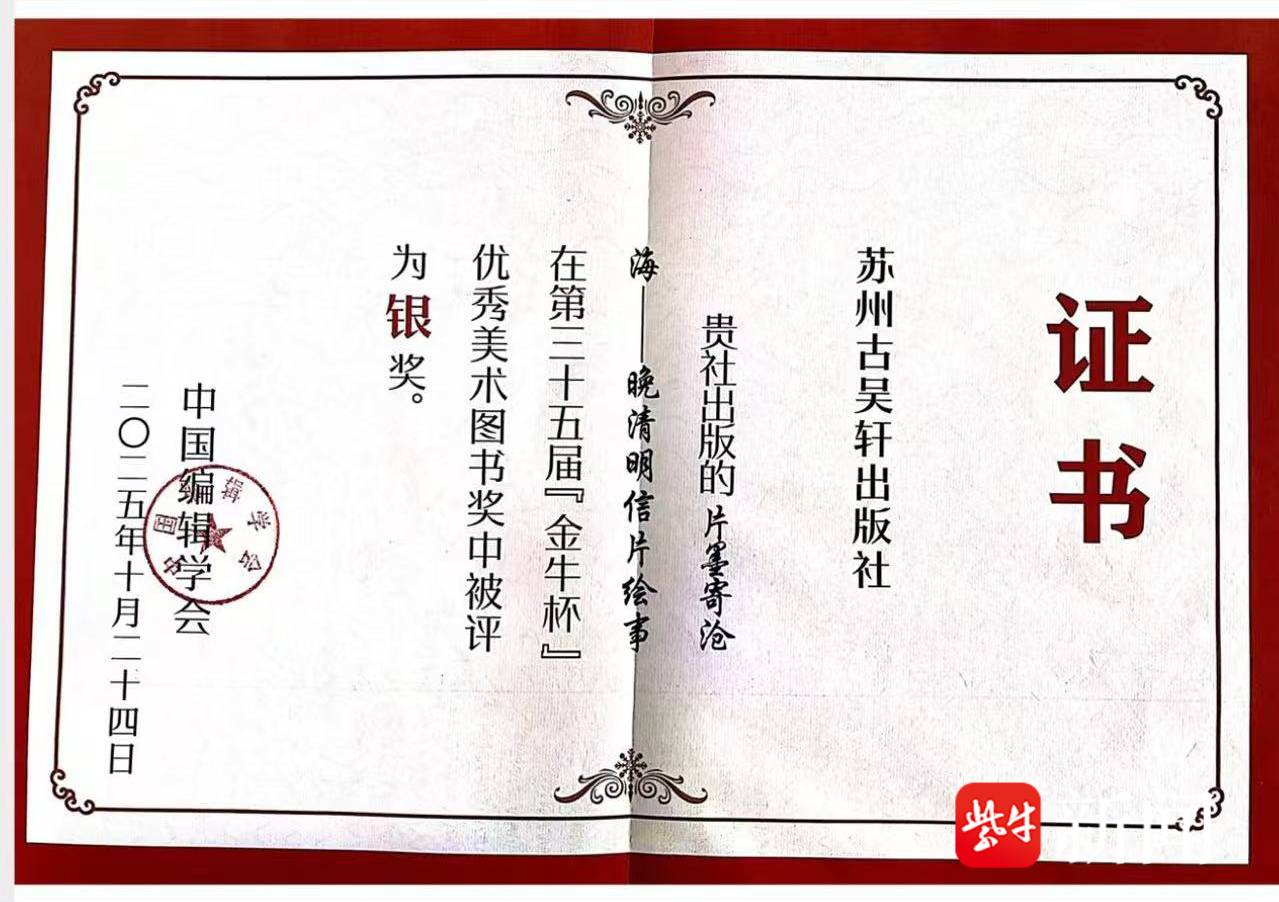 证书
苏州古吴轩出版社
贵社出版的 片墨寄沧
海——晚清明信片绘事
在第三十五届『金牛杯』
优秀美术图书奖中被评
为银奖。
中国编辑学会
二〇二五年十月二十四日
中国编辑学会
紫牛
新闻